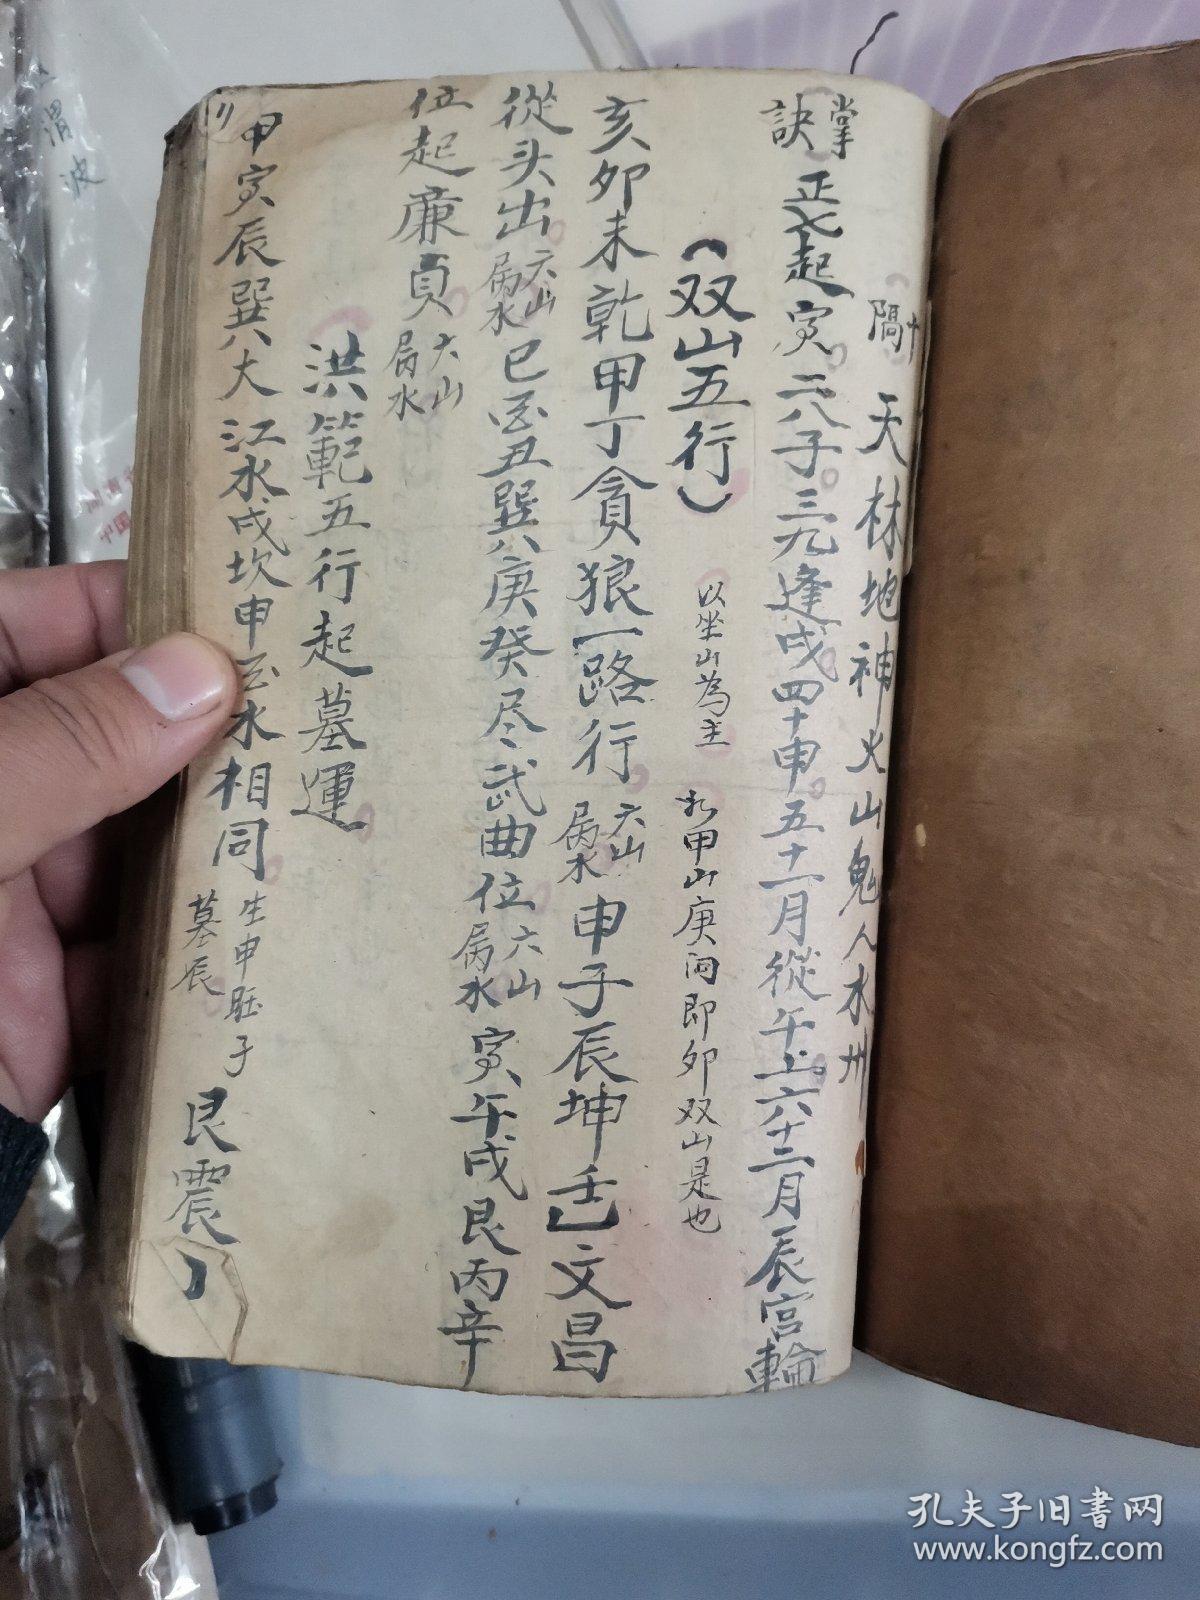 十隔 天林地神火山鬼人水州
掌訣 正七起寅二八子三九逢戌四十申五十一月從午上六十二月辰宮輪
（双山五行） 以坐山為主 如甲山庚向即卯双山是也
亥卯未乾甲丁貪狼一路行 六山屬木 申子辰坤壬乙文昌
從头出 六山屬水 巳酉丑巽庚癸尽武曲位 六山屬水 寅午戌艮丙辛
位起廉貞 六山屬水
洪範五行起墓運
甲寅辰巽大江水戌坎申辛水相同 生申旺子墓辰 艮震
渭波
孔夫子旧書网
www.kongfz.com